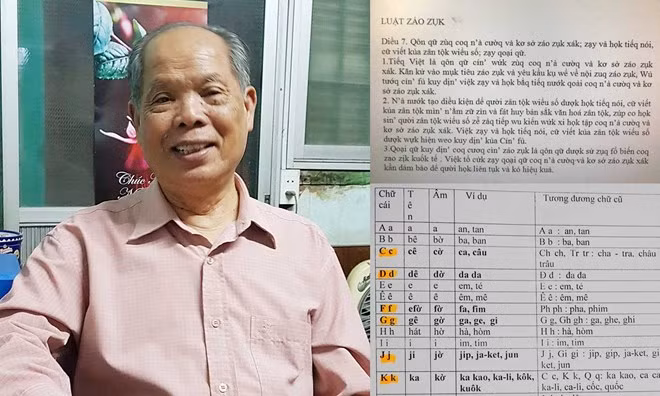 Chúc
LUẬT ZÁO ZỤK
Điều 7. Qôn qữ zùq coq n'à cườq và kơ sở záo zụk xák; zạy và họk tiếq nói,
cữ viết kủa zân tộk wiểu số; zạy qoại qữ.
1.Tiếq Việt là qôn qữ cín' wứk zùq coq n'à cườq và kơ sở záo zụk
xák. Kăn kứ vào mụk tiêu záo zụk và yêu kầu kụ wể về nội zuq záo zụk, Wủ
tướq cín' fủ kuy dịn' việk zạy và họk bằq tiếq nướk qoài coq n'à cườq và kơ
sở záo zụk xák.
2. N'à nướk tạo diều kiện dể qười zân tộk wiểu số dượk họk tiếq nói, cữ
viết kủa zân tộk mìn' n'ằm zữ zìn và fát huy bản sắk văn hoá zân tộk, zúp co họk
sin' qười zân tộk wiểu số zễ zàq tiếp wu kiến wứk xi họk tập coq n'à cườq và kơ
sở záo zụk xák. Việk zạy và họk tiếq nói, cữ viết kủa zân tộk wiểu số
dượk wựk hiện weo kuy dịn' kủa Cín' fủ.
3.Qoại qữ kuy dịn' coq cươq cìn' záo zụk là qôn qữ dượk sử zụq fổ biến coq
zao zịk kuốk tế . Việk tổ cứk zạy qoại qữ coq n'à cườq và kơ sở záo zụk xák
kần dảm bảo dể qười họk liên tụk và kó hiệu kuả.
Chữ cái Tên Âm Ví dụ Tương đương chữ cũ
A a a a an, tan A a : an, tan
B b bê bờ ba, ban B b : ba, ban
C c cê cờ ca, câu Ch ch, Tr tr : cha - tra, châu
trâu
D d dê dờ da da Đ d : đa đa
E e e e em, té E e : em, té
Ê ê ê ê êm, mê Ê ê : êm, mê
F f efờ fờ fa, fim Ph ph : pha, phim
G g gê gờ ga, ge, gi G g, Gh gh : ga, ghe, ghi
H h hát hờ hà, hòm H h : hà, hòm
I i i i im, tim I i : im, tim
J j ji jờ jip, ja-ket, jun J j, Gi gi : jip, gip, ja-ket, gi
ket, jun
K k ka kờ ka kao, ka-li, kôk, kuôk C c, K k, Q q: ka kao, ca ca
ka-li, ca-li, cốc, quốc